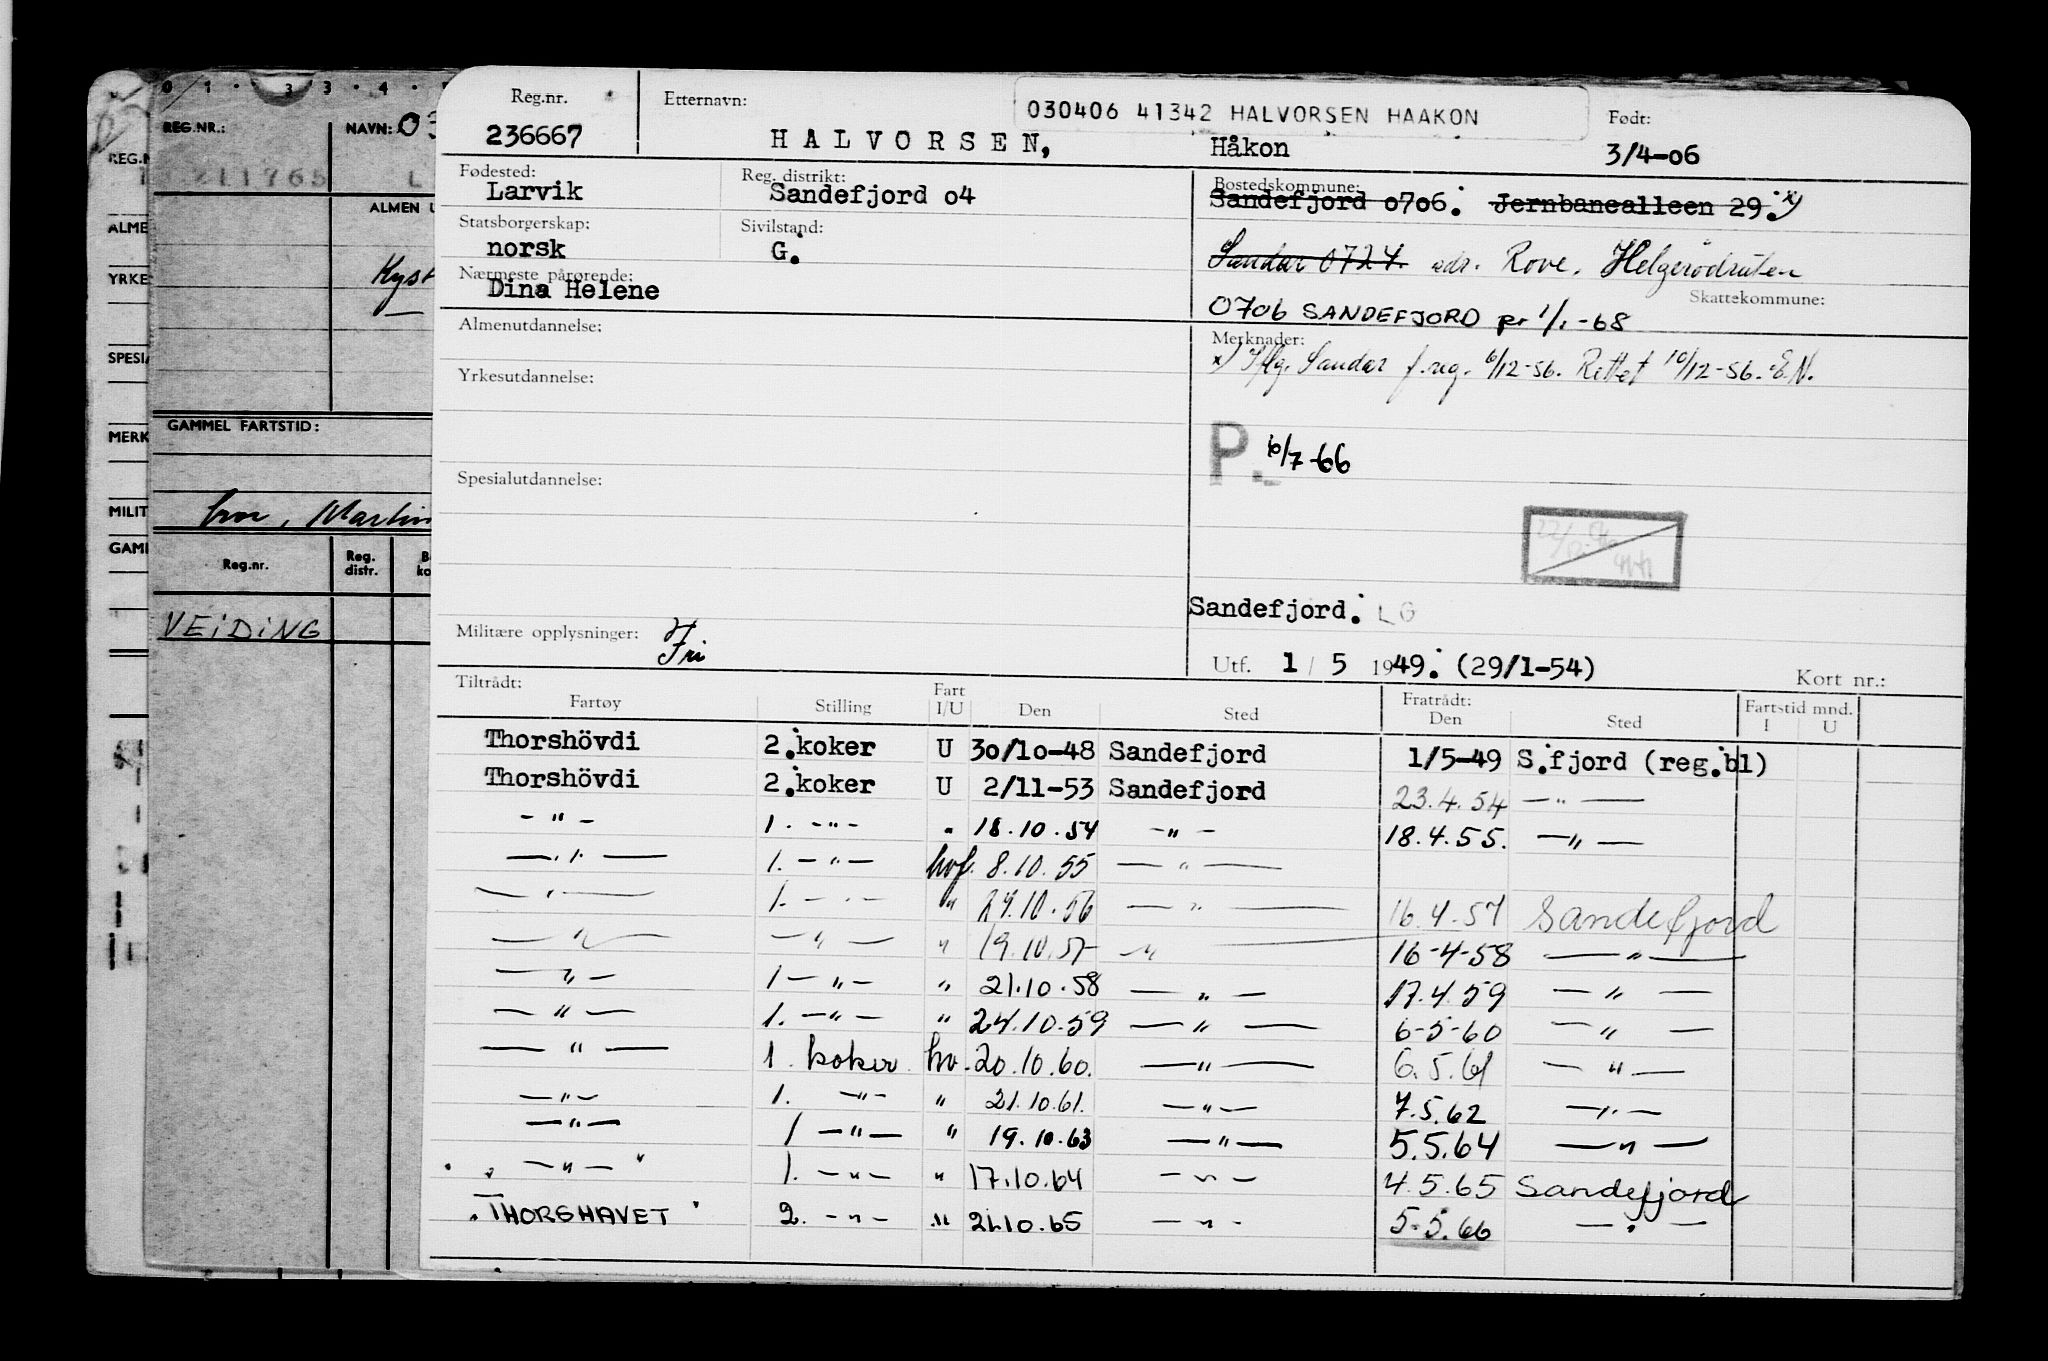 0 1 · 3 3 · 4 · 5
REG.NR.:
NAVN: 03
REG.N
211765
L
ALMEN U
ALME
YRKE
Kyst
SPESIA
GAMMEL FARTSTID:
MERK
MILIT
Ivar, Martin
GAMI
Reg.nr.
Reg. distr.
B
ko
VEIDING
Reg.nr.
236667
Etternavn:
030406 41342 HALVORSEN HAAKON
HALVORSEN,
Håkon
Født:
3/4-06
Fødested:
Larvik
Reg. distrikt:
Sandefjord o4
Bostedskommune:
Sandefjord o706. Jernbanealleen 29. x)
Statsborgerskap:
norsk
Sivilstand:
G.
Sandar 0724. adr. Rove, Helgerödruten
Nærmeste pårørende:
Dina Helene
Skattekommune:
0706 SANDEFJORD pr 1/1-68
Almenutdannelse:
Merknader:
x) Iflg. Sandar f.reg. 6/12-56. Rettet 10/12-56. E.N.
Yrkesutdannelse:
P. 6/7-66
Spesialutdannelse:
Sandefjord. LG
Militære opplysninger: Fri
Utf. 1 / 5 1949. (29/1-54)
Kort nr.:
Tiltrådt:
Fartøy Stilling Fart I/U Den Sted
Fratrådt:
Den Sted
Fartstid mnd.
I U
Thorshövdi 2.koker U 30/10-48 Sandefjord 1/5-49 S.fjord (reg.bl)
Thorshövdi 2.koker U 2/11-53 Sandefjord 23.4.54 — " —
- " - 1. - " - " 18.10.54 - " - 18.4.55. — " —
— " — 1. — " — hvf. 8.10.55 — " —
— " — 1. - " - " 24.10.56 — " — 16.4.57 Sandefjord
— " — — " — " 19.10.57 — " — 16-4-58 — " —
— " — 1 — " — " 21.10.58 — " — 17.4.59 — " —
— " — 1. — " — " 24.10.59 — " — 6-5-60 — " —
— " — 1. koker hv. 20.10.60. — " — 6.5.61 — " —
— " — 1. — " — " 21.10.61. — " — 7.5.62 — " —
— " — 1 — " — " 19.10.63 — " — 5.5.64 — " —
— " — 1. — " — " 17.10.64 — " — 4.5.65 Sandefjord
"THORSHAVET" 2. - " - " 21.10.65 — " - 5.5.66 — " —